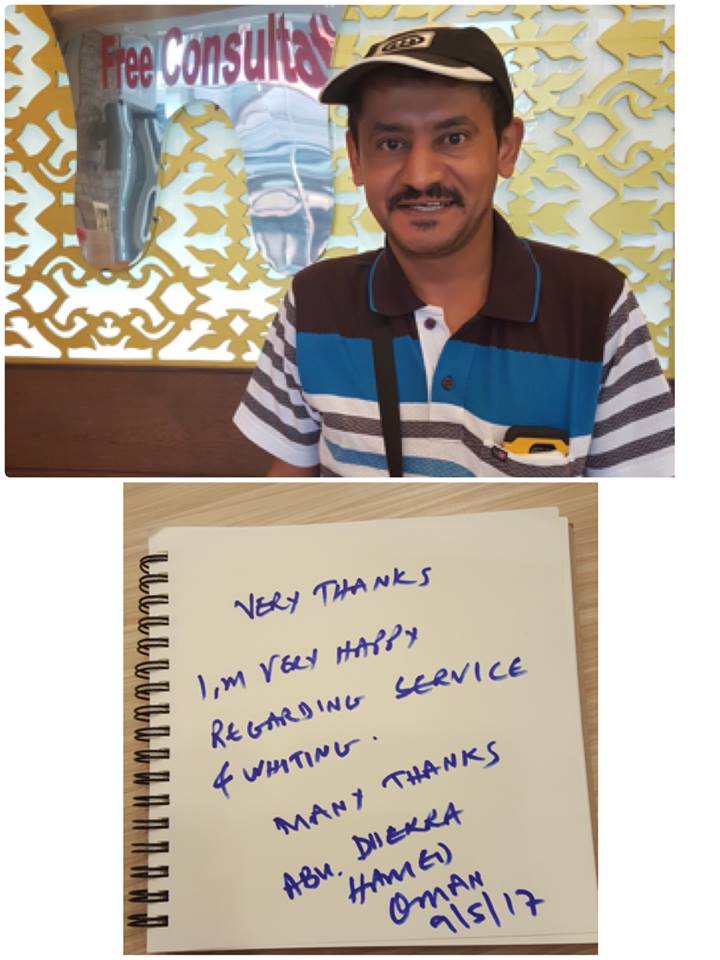 Free Consulta
VERY THANKS
I,M VERY HAPPY
REGARDING SERVICE
& WHITING.
MANY THANKS
ABU. DHEKRA
HAMED
OMAN
9/5/17